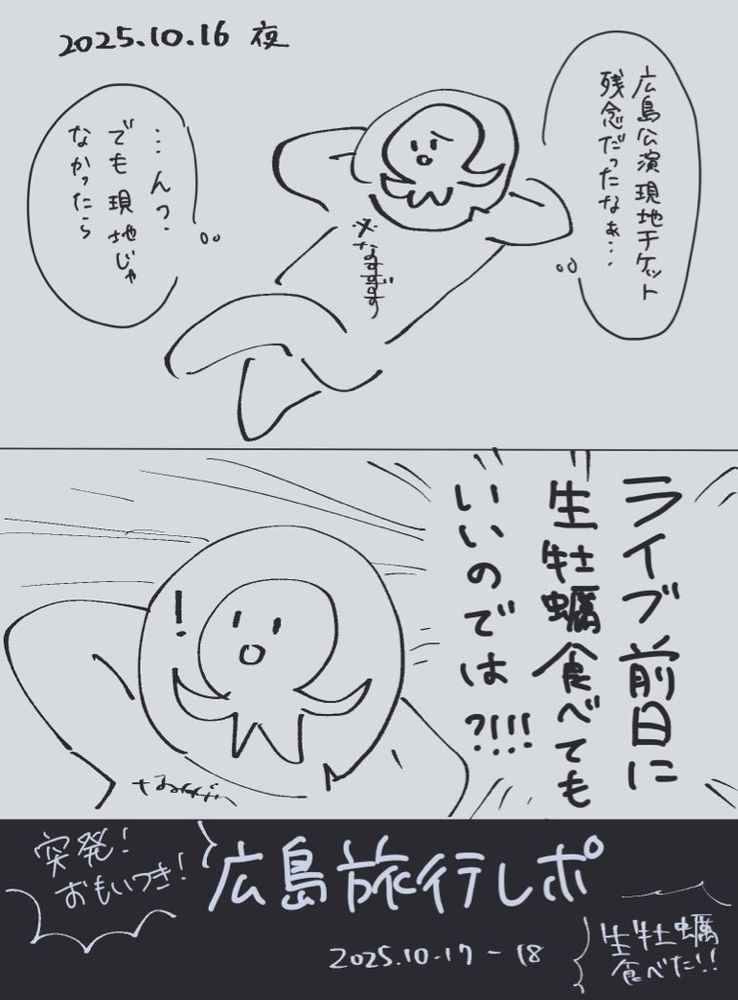 2025.10.16 夜
広島公演現地チケット
残念だったなぁ…
…んっ.
でも現地じゃ
なかったら
ライブ前日に
生牡蠣食べても
いいのでは?!!!
!
突発!
おもいつき!
広島旅行レポ
2025.10.17-18
生牡蠣
食べた!!